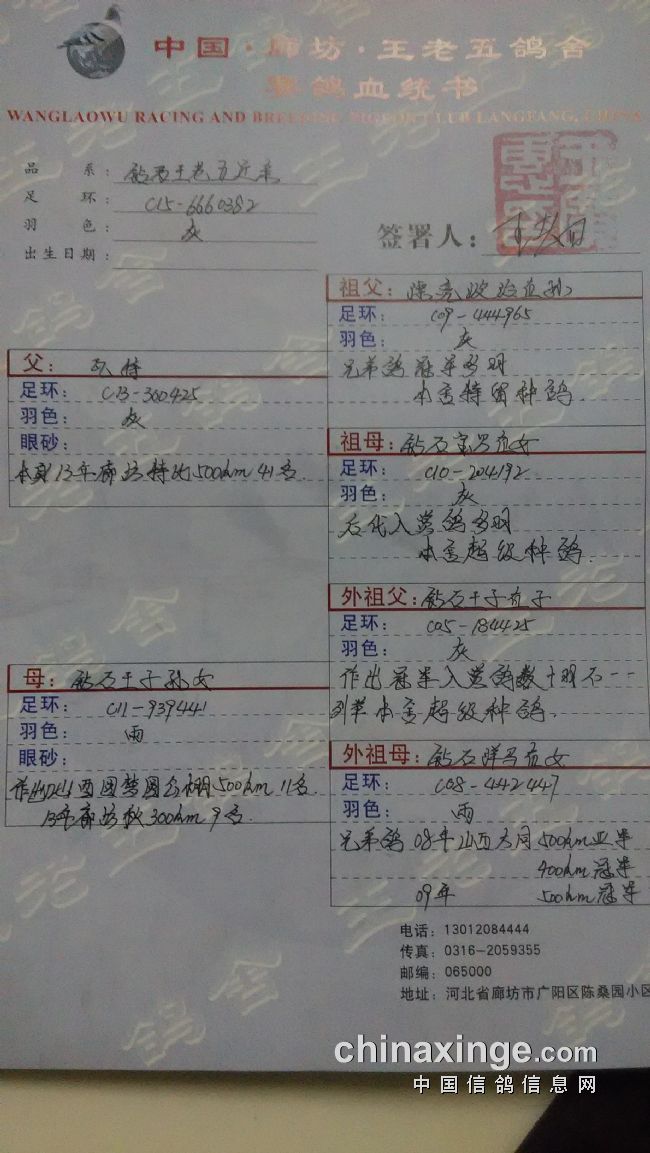 中国·廊坊·王老五鸽舍
赛鸽血统书
WANGLAOWU RACING AND BREEDING PIGEON CLUB LANGFANG, CHINA
品系：钻石王老五近亲
足环：C15-6660382
羽色：灰
出生日期：
签署人：
祖父：
足环：C09-444965
羽色：灰
兄弟鸽冠军多羽
本舍特留种鸽
父：
足环：C13-360425
羽色：灰
眼砂：
本身13年廊坊特比500km 41名.
祖母：钻石宝马直女
足环：C10-204192
羽色：灰
后代入赏鸽多羽
本舍超级种鸽.
外祖父：钻石王子直子
足环：C05-184425
羽色：灰
作出冠军入赏鸽数十羽不一一
列举 本舍超级种鸽.
母：钻石王子孙女
足环：C11-939441
羽色：雨
眼砂：
作出山西圆梦园公棚500km 11名.
13年廊坊秋300km 9名.
外祖母：钻石 直女
足环：C08-442447
羽色：雨
兄弟鸽 08年山西大同500km亚军
400km冠军
09年 500km冠军
电话：13012084444
传真：0316-2059355
邮编：065000
地址：河北省廊坊市广阳区陈桑园小区
chinaxinge.com
中国信鸽信息网